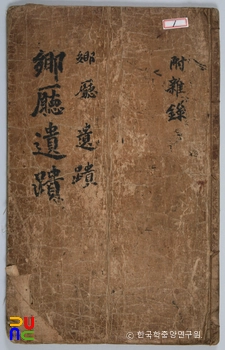 附雜錄
鄕廳遺蹟
鄕廳遺蹟
1
© 한국학중앙연구원